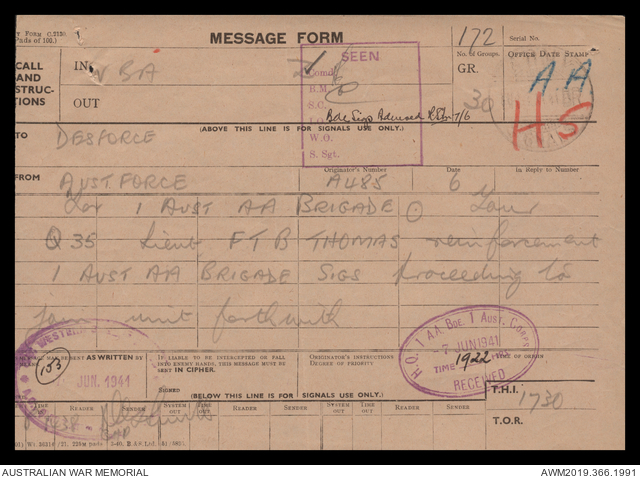 Y FORM C.2136
Pads of 100.)
MESSAGE FORM
172
Serial No.
CALL
AND
NSTRUC-
TIONS
IN
OUT
SEEN
Comdr
B.M.
S.C.
I.O.
W.O.
S. Sgt.
Bde Sigs Advised 7/6
No. of Groups.
GR.
30
OFFICE DATE STAMP
A A
H S
(ABOVE THIS LINE IS FOR SIGNALS USE ONLY.)
TO
DESFORCE
Originator's Number
Date
In Reply to Number
FROM
AUSTFORCE
A485
6
For 1 AUST AA BRIGADE Your
Q 35 Lieut F T B THOMAS reinforcement
1 AUST AA BRIGADE SIGS proceeding to
join unit forthwith
AS WRITTEN BY
IF LIABLE TO BE INTERCEPTED OR FALL
INTO ENEMY HANDS, THIS MESSAGE MUST BE
SENT IN CIPHER.
ORIGINATOR'S INSTRUCTIONS
DEGREE OF PRIORITY
TIME OF ORIGIN
153
JUN. 1941
SIGNED
(BELOW THIS LINE IS FOR SIGNALS USE ONLY.)
H.Q. 1 A.A. BDE. 1 AUST. CORPS
7 JUN 1941
TIME 1922 HRS
RECEIVED
T.H.I.
1730
TIME IN
READER
SENDER
SYSTEM OUT
TIME OUT
READER
SENDER
SYSTEM OUT
TIME OUT
READER
SENDER
SYSTEM OUT
T.O.R.
1938
AUSTRALIAN WAR MEMORIAL
AWM2019.366.1991